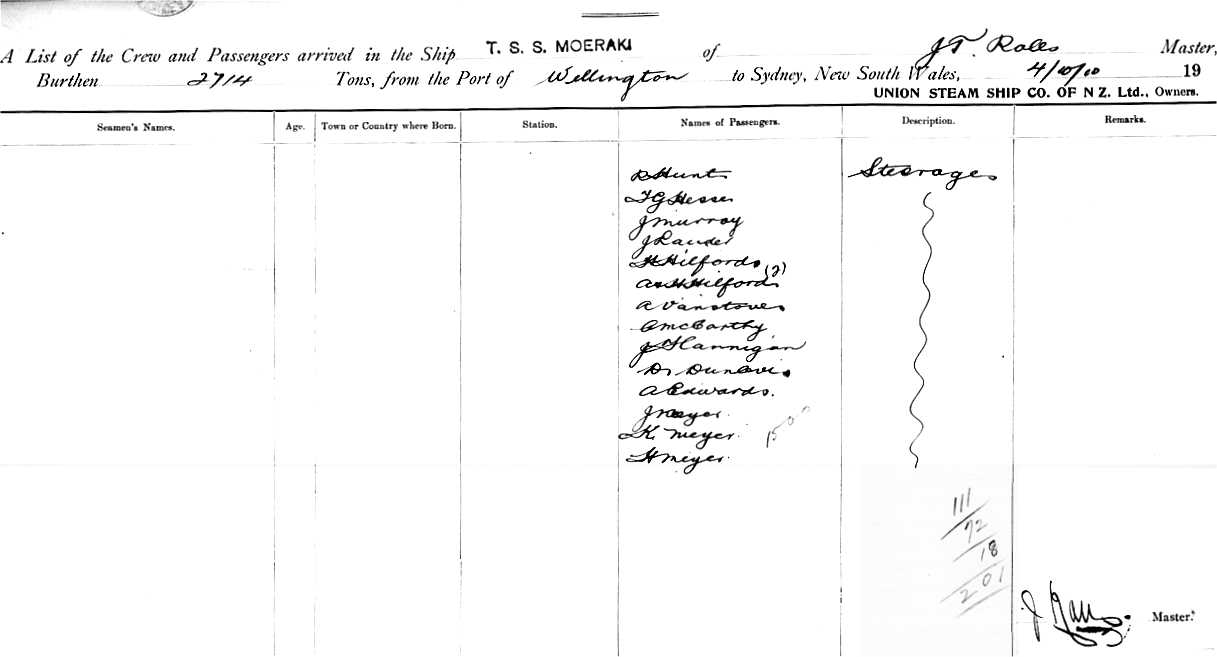 A List of the Crew and Passengers arrived in the Ship T. S. S. MOERAKI of J T. Rolls Master,
Burthen 2714 Tons, from the Port of Wellington to Sydney, New South Wales, 4/10/10 19
UNION STEAM SHIP CO. OF N Z. Ltd., Owners.
Seamen's Names. Age. Town or Country where Born. Station. Names of Passengers. Description. Remarks.
Hunt Steerage
T G Hesse
J Murray
J Lauder
H Hilfords
H Hilfords (2)
A Vanstone
C McCarthy
J Flannigan
D.
A Edwards.
J Meyer.
K. Meyer.
H Meyer.
111
72
18
201
J Master.